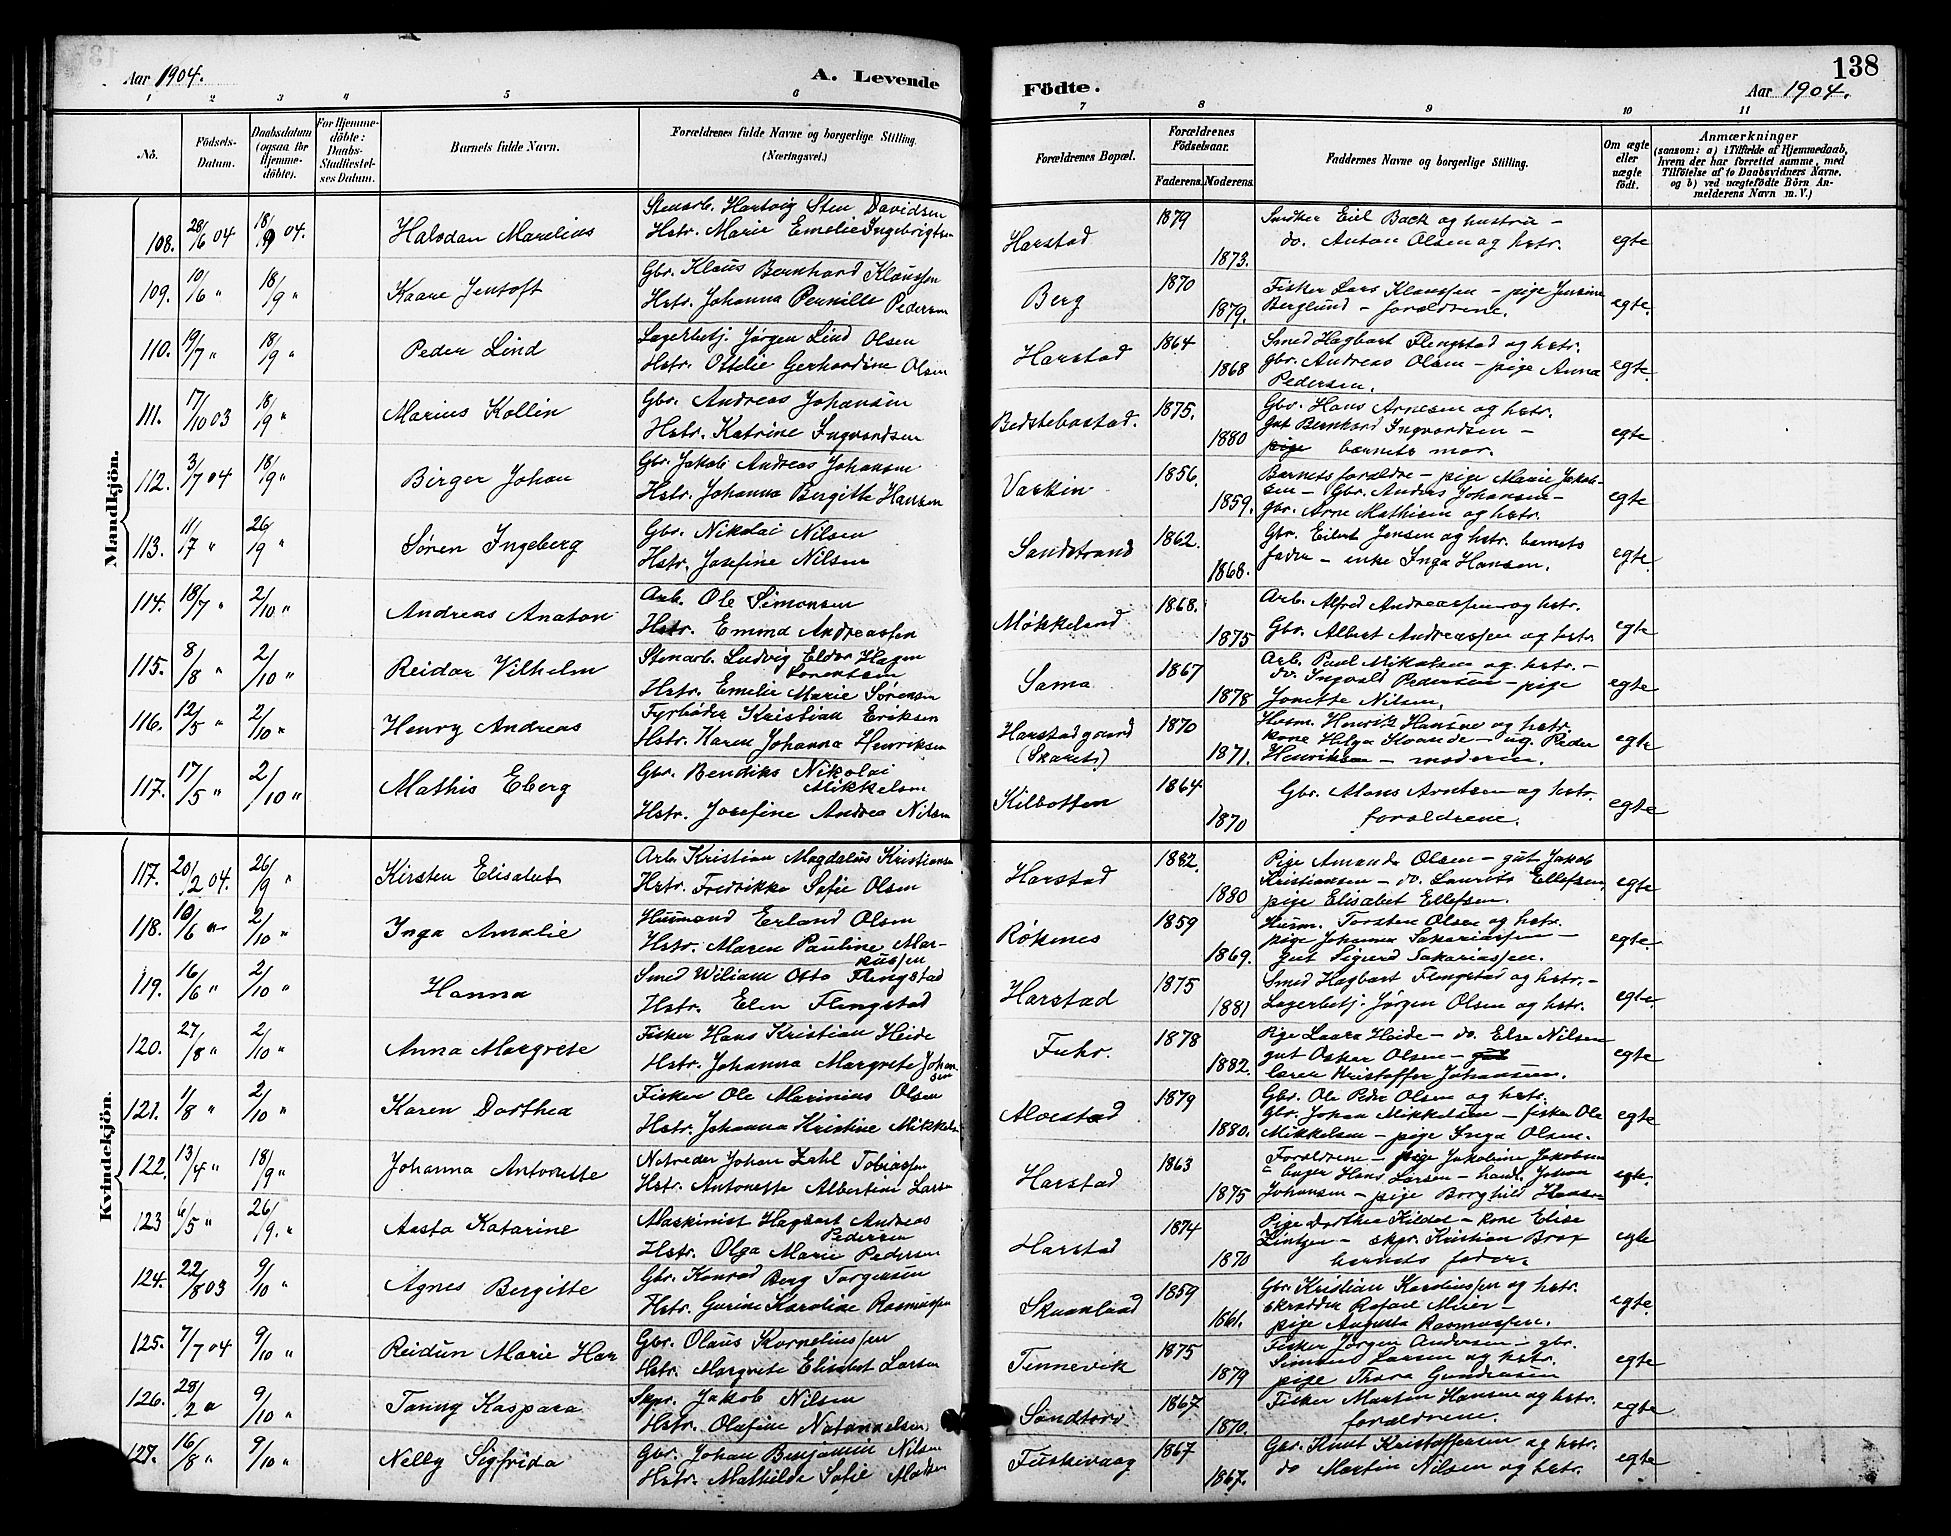 138
Aar 1904.
A. Levende
Födte.
Aar 1904.
1 2 3 4 5 6 7 8 9 10 11
No.
Födsels-
Datum.
Daabsdatum
(ogsaa for
Hjemme-
döbte).
For Hjemme-
döbte:
Daabs-
Stadfæstel-
ses Datum.
Barnets fulde Navn.
Forældrenes fulde Navne og borgerlige Stilling.
(Næringsvei.)
Forældrenes Bopæl.
Forældrenes
Födselsaar.
Faderens. Moderens.
Faddernes Navne og borgerlige Stilling.
Om ægte
eller
uægte
født.
Anmærkninger
(saasom: a) i Tilfælde af Hjemmedaab,
hvem der har forrettet samme, med
Tilföielse af to Daabsvidners Navne,
og b) ved uægtefödte Börn An-
melderens Navn m. V.)
Mandkjön.
108. 28/6 04 18/9 04. Halvdan Marelius
Stenarb. Hartvig Sten Davidsen
Hstr. Marie Emelie Ingebrigtsen
Harstad 1879 1873.
Snedker Eiel Back og hustru -
do. Anton Olsen og hstr.
egte
109. 10/6 " 18/9 " Kaare Jentoft
Gbr. Klaus Bernhard Klaussen
Hstr. Johanna Pernille Pedersen
Berg 1870 1879.
Fisker Lars Klaussen - pige Jensine
Berglund - forældrene.
egte.
110. 19/7 " 18/9 " Peder Lind
Lagerbetj. Jørgen Lind Olsen
Hstr. Ottelie Gerhardine Olsen
Harstad 1864 1868
Smed Hagbart Flengstad og hstr.
gbr. Andreas Olsen - pige Anna
Pedersen.
egte.
111. 17/10 03 18/9 " Marius Kollin
Gbr. Andreas Johansen
Hstr. Katrine Ingvardsen
Bedstebostad. 1875. 1880
Gbr. Hans Arnesen og hstr.
gut Bernhard Ingvardsen -
pige barnets mor.
egte
112. 3/7 04 18/9 " Birger Johan
Gbr. Jakob Andreas Johansen
Hstr. Johanna Bergitte Hansen
Vaskin 1856. 1859.
Barnets forældre - pige Marie Jakob-
sen - Gbr. Anders Johansen -
gbr. Arne Mathisen og hstr.
egte
113. 11/7 " 26/9 " Søren Ingeberg
Gbr. Nikolai Nilsen
Hstr. Josefine Nilsen
Sandstrand 1862. 1868.
Gbr. Eilert Jensen og hstr. barnets
fader - enke Inga Hansen.
egte.
114. 18/7 " 2/10 " Andreas Anaton
Arb. Ole Simonsen
Hstr. Emma Andreassen
Møkkeland 1868. 1875
Arb. Alfred Andreassen og hstr.
Gbr. Albert Andreassen og hstr.
egte
115. 8/8 " 2/10 " Reidar Vilhelm
Stenarb. Ludvig Eldor Hagen
Sørensen
Hstr. Emelie Marie Sørensen
Sama 1867 1878
Arb. Paul Mikalsen og hstr. -
do. Ingvald Pedersen - pige
Jonette Nilsen.
egte
116. 12/5 " 2/10 " Henry Andreas
Fyrbøder Kristian Eriksen
Hstr. Karen Johanna Henriksen
Harstadgaard
1870 1871.
Husm. Henrik Hansen og hstr.
kone Helga Kvande - ug. Peder
Henriksen - moderen.
egte
117. 17/5 " 2/10 " Mathis Eberg
Gbr. Bendiks Nikolai
Mikkelsen
Hstr. Josefine Andrea Nilsen
Kilbotten 1864 1870
Gbr. Mons Arntsen og hstr.
forældrene.
egte
Kvindekjön.
117. 20/2 04. 26/9 " Kirsten Elisabet
Arb. Kristian Magdalus Kristiansen
Hstr. Fredrikke Sofie Olsen
Harstad 1882. 1880
Pige Amanda Olsen - gut Jakob
Kristiansen - do. Laurits Ellefsen,
pige Elisabet Ellefsen.
egte
118. 10/6 " 2/10 " Inga Amalie
Husmand Erland Olsen
Hstr. Maren Pauline Mar-
kussen
Røkenes 1859 1869.
Husm. Torsten Olsen og hstr.
pige Johanna Sakariassen -
gut Sigurd Sakariassen.
egte.
119. 16/6 " 2/10 " Hanna
Smed Wiliam Otto Flengstad
Hstr. Elen Flengstad
Harstad 1875 1881
Smed Hagbart Flengstad og hstr. -
Lagerbetj. Jørgen Olsen og hstr.
egte.
120. 27/8 " 2/10 " Anna Margrete
Fisker Hans Kristian Heide
Hstr. Johanna Margrete Johan
sen
Fuhr. 1878 1882.
Pige Laura Heide - do. Else Nilsen
gut Oskar Olsen - gut
lærer Kristoffer Johansen.
egte
121. 1/8 " 2/10 " Karen Dorthea
Fisker Ole Marinius Olsen
Hstr. Johanna Kristine Mikkelsen
Alvestad 1879 1880.
Gbr. Ole Peder Olsen og hstr.
Gbr. Johan Mikkelsen - fisker Ole
Mikkelsen - pige Inga Olsen.
egte
122. 13/4 " 18/9 " Johanna Antonette
Notreder Johan Zahl Tobiassen
Hstr. Antonette Albertine Larsen
Harstad 1863 1875
Forældrene - pige Jakobine Jakobsen
bager Hans Larsen - handl. Johan
Johansen - pige Borghild Hansen
egte
123 6/5 " 26/9. " Aasta Katarine
Maskinist Hagbart Andreas
Pedersen
Hstr. Olga Marie Pedersen
Harstad 1874 1870
Pige Dorthea Kildal - kone Elise
Lintzen - skpr. Kristian Brox
barnets fader.
egte
124. 22/8 03 9/10 " Agnes Bergitte
Gbr. Konrad Berg Torgersen
Hstr. Gurine Karoline Rasmussen
Skaanland 1859 1861.
Gbr. Kristian Karoliussen og hstr.
skrædder Rafael Meier -
pige Augusta Rasmussen.
egte.
125. 7/7 04 9/10 " Reidun Marie Har
Gbr. Olaus Korneliussen
Hstr. Margrete Elisabet Larsen
Tennevik 1875 1879
Fisker Jørgen Andersen - gbr.
Simon Larsen og hstr.
pige Thora Gundersen
egte
126. 28/2 " 9/10 " Tanny Kaspara
Skpr. Jakob Nilsen
Hstr. Olufine Natanaelsen
Sandtorv 1867 1870.
Fisker Martin Hansen og hstr.
forældrene.
egte
127. 16/8 " 9/10 " Nelly Sigfrida
Gbr. Johan Benjamin Nilsen
Hstr. Mathilde Sofie Madsen
Fuskevaag 1867 1867.
Gbr. Knut Kristoffersen og hstr.
do Martin Nilsen og hstr.
egte